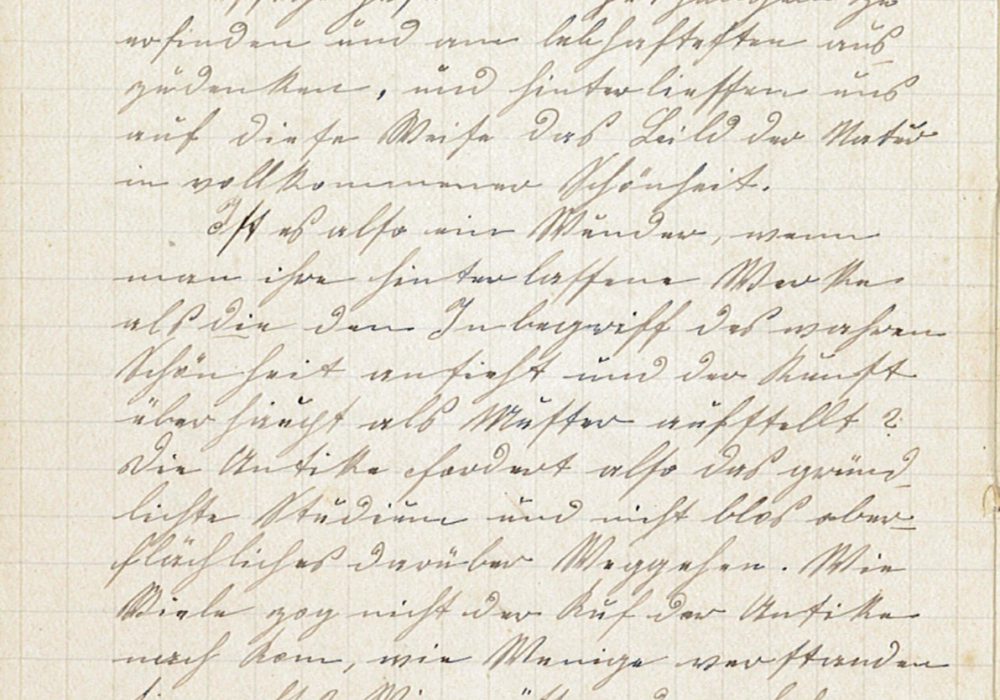 erfinden und am lebhaftesten aus
zudenken, und hinterliessen uns
auf diese Weise das Bild der Natur
in vollkommener Schönheit.
Ist es also ein Wunder, wenn
man ihre hinterlassene Werke
als die den Inbegriff des wahren
Schönheit ansieht und der Kunst
überhaupt als Muster aufstellt?
Die Antike fordert also das gründ-
lichste Studium und nicht blos ober-
flächliches darüber Weggehen. Wie
Viele zog nicht der Ruf der Antike
nach Rom, wie Wenige verstanden